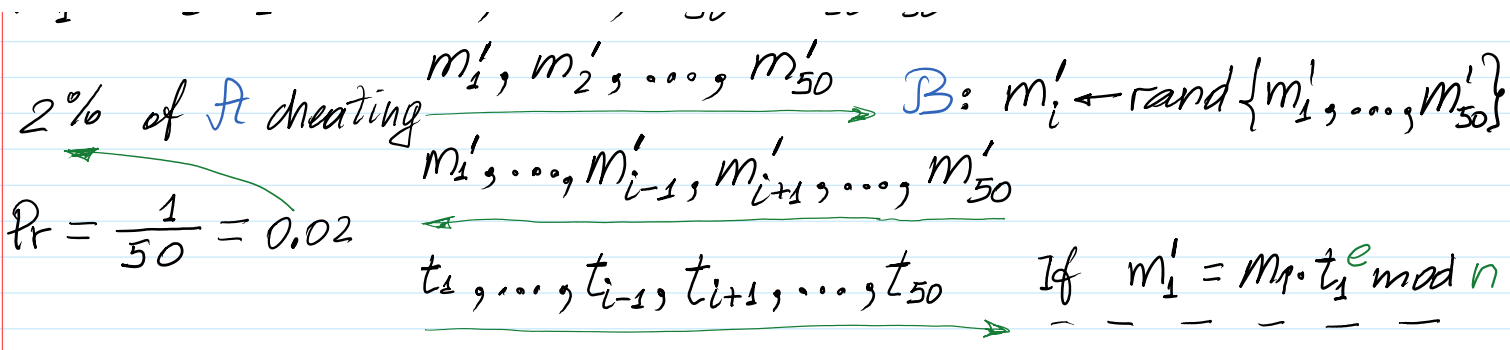 m'₁, m'₂, ..., m'₅₀
2% of A cheating
B: m'ᵢ ← rand {m'₁, ..., m'₅₀}
m'₁, ..., m'ᵢ₋₁, m'ᵢ₊₁, ..., m'₅₀
Pr = 1/50 = 0.02
t₁, ..., tᵢ₋₁, tᵢ₊₁, ..., t₅₀
If m'₁ = m₁·t₁ᵉ mod n